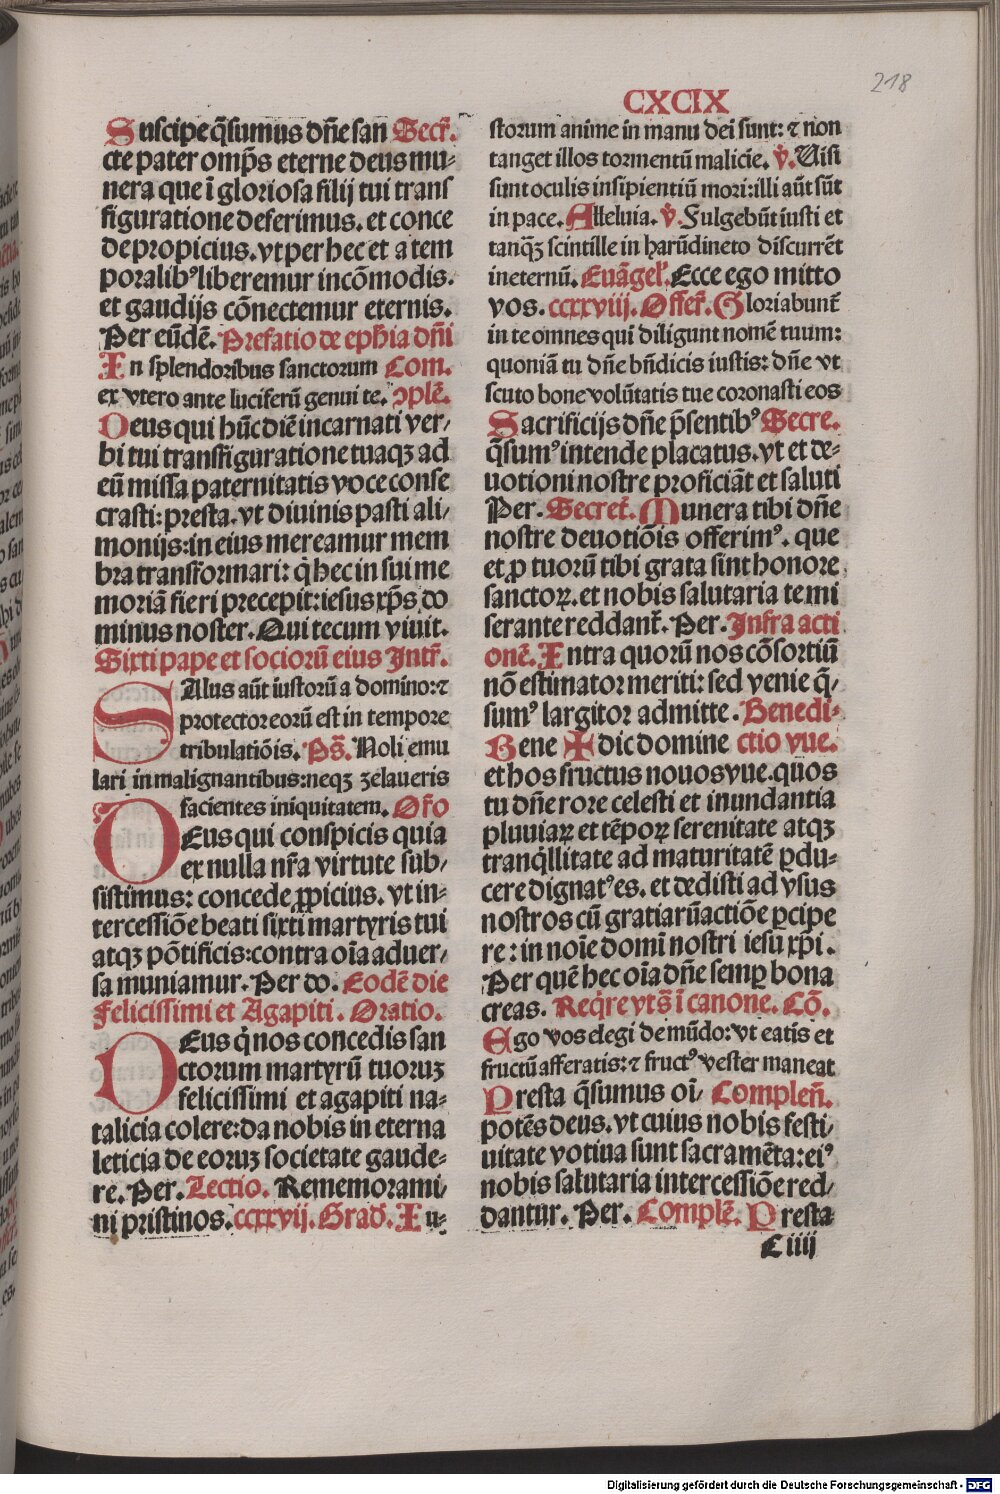 218
CXCIX
Suscipe q̃sumus dñe san Secr̃.
cte pater omp̃s eterne deus mu⸗
nera que ĩ gloriosa filij tui trans
figuratione deferimus. et conce
de propicius. vt per hec et a tem
poralibꝰ liberemur incõmodis.
et gaudijs cõnectemur eternis.
Per eũdẽ. Prefatio de eph̃ia dñi
In splendoribus sanctorum Com.
ex vtero ante luciferũ genui te. ↄplẽ.
Deus qui hũc diẽ incarnati ver⸗
bi tui transfiguratione tuaqꝫ ad
eũ missa paternitatis voce conse
crasti: presta. vt diuinis pasti ali⸗
monijs: in eius mereamur mem
bra transformari: q̇ hec in sui me
moriã fieri precepit: iesus xp̃s do
minus noster. Qui tecum viuit.
Sixti pape et sociorũ eius Intr̃.
SAlus aũt iustorũ a domino: ⁊
protector eorũ est in tempore
tribulatiõis. Ps̃. Noli emu
lari in malignantibus: neqꝫ zelaueris
facientes iniquitatem. Or̃o
DEus qui conspicis quia
ex nulla nr̃a virtute sub⸗
sistimus: concede ꝓpicius. vt in⸗
tercessiõe beati sixti martyris tui
atqꝫ põtificis: contra oĩa aduer⸗
sa muniamur. Per do. Eodẽ die
Felicissimi et Agapiti. Oratio.
DEus q̇ nos concedis san
ctorum martyrũ tuoruꝫ
felicissimi et agapiti na⸗
talicia colere: da nobis in eterna
leticia de eoruꝫ societate gaude⸗
re. Per. Lectio. Rememorami⸗
ni pristinos. ccxxvij. Grad̃. Iu⸗
storum anime in manu dei sunt: ⁊ non
tanget illos tormentũ malicie. ṽ. Uisi
sunt oculis insipientiũ mori: illi aũt sũt
in pace. Alleluia. ṽ. Fulgebũt iusti et
tanqꝫ̃ scintille in harũdineto discurrẽt
in eternũ. Euãgel̃. Ecce ego mitto
vos. ccxxviij. Offer̃. Gloriabunt̃
in te omnes qui diligunt nomẽ tuum:
quoniã tu dñe bñdicis iustis: dñe vt
scuto bone volũtatis tue coronasti eos
Sacrificijs dñe p̃sentibꝰ Secre.
q̃sumꝰ intende placatus. vt et de⸗
uotioni nostre proficiãt et saluti
Per. Secret̃. Munera tibi dñe
nostre deuotiõis offerimꝰ. que
et ꝓ tuorũ tibi grata sint honore
sanctoꝝ. et nobis salutaria te mi
serante reddant̃. Per. Infra acti
onẽ. Intra quorũ nos cõsortiũ
nõ estimator meriti: sed venie q̃⸗
sumꝰ largitor admitte. Benedi⸗
Bene ✠ dic domine ctio vue.
et hos fructus nouos vue. quos
tu dñe rore celesti et inundantia
pluuiaꝝ et tẽpoꝝ serenitate atqꝫ
tranq̇llitate ad maturitatẽ ꝑdu⸗
cere dignatꝰ es. et dedisti ad vsus
nostros cũ gratiarũ actiõe ꝑcipe
re: in noĩe domĩ nostri iesu xp̃i.
Per quẽ hec oĩa dñe semꝑ bona
creas. Req̇re vts̃ ĩ canone. Cõ.
Ego vos elegi de mũdo: vt eatis et
fructũ afferatis: ⁊ fructꝰ vester maneat
Presta q̃sumus oĩ⸗ Compleñ.
potẽs deus. vt cuius nobis festi⸗
uitate votiua sunt sacramẽta: eiꝰ
nobis salutaria intercessiõe red⸗
dantur. Per. Complẽ. Presta
C iiij
Digitalisierung gefördert durch die Deutsche Forschungsgemeinschaft - DFG